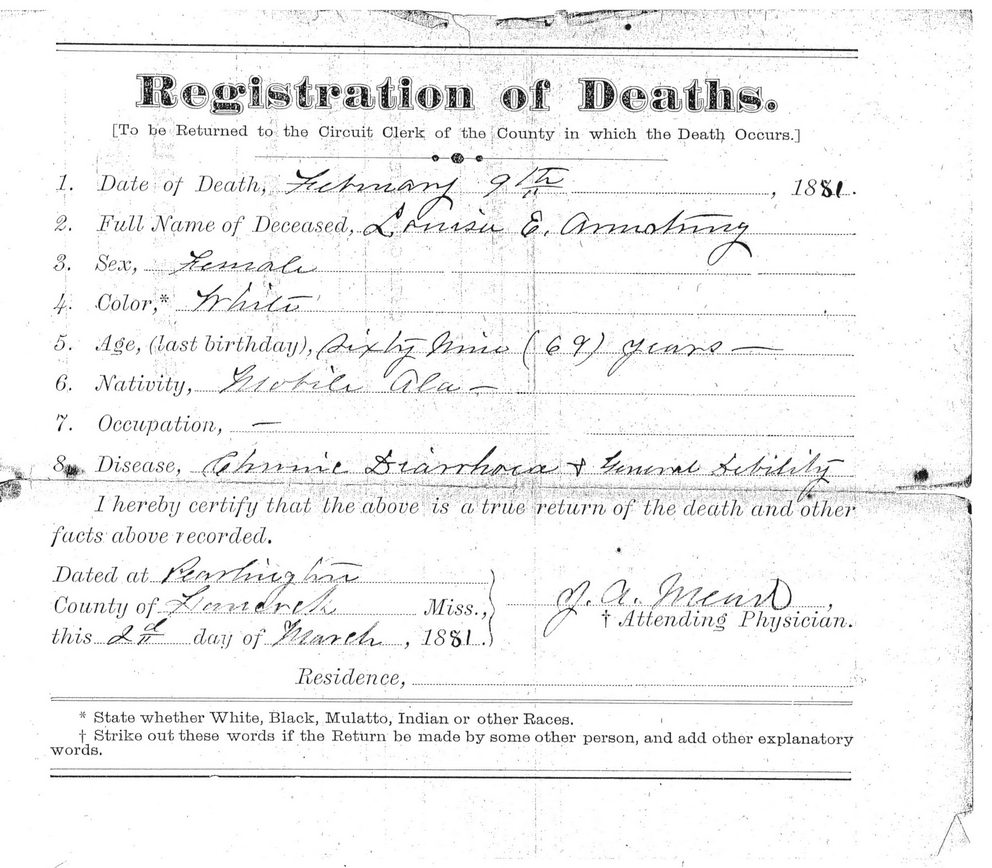 Registration of Deaths.
[To be Returned to the Circuit Clerk of the County in which the Death Occurs.]
1. Date of Death, February 9th, 1881.
2. Full Name of Deceased, Louisa E. Armstrong
3. Sex, Female
4. Color,* White
5. Age, (last birthday), Sixty Nine (69) years —
6. Nativity, Mobile Ala —
7. Occupation, —
8. Disease, Chronic Diarrhoea & General Debility
I hereby certify that the above is a true return of the death and other
facts above recorded.
Dated at Pearlington
County of Hancock Miss.,
J. A. Mead,
† Attending Physician.
this 2d day of March, 1881.
Residence,
* State whether White, Black, Mulatto, Indian or other Races.
† Strike out these words if the Return be made by some other person, and add other explanatory
words.